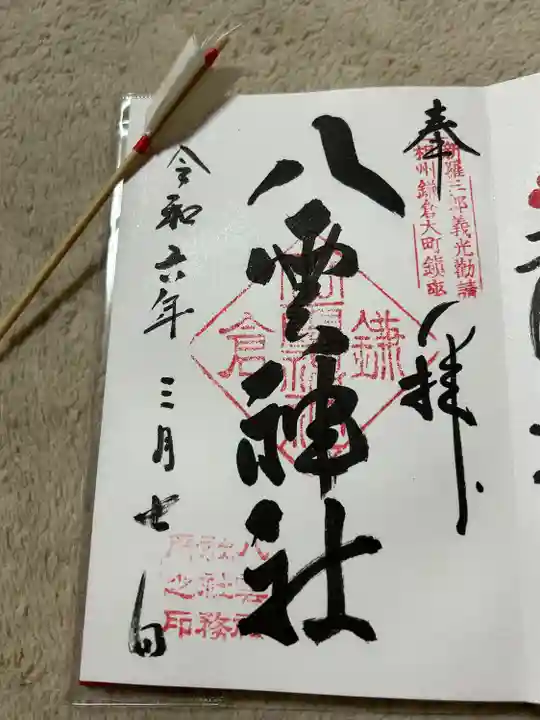 奉拝
新羅三郎義光勧請
相州鎌倉大町鎮座
八雲神社
鎌倉
八雲神社
社務所
之印
令和六年 三月七日